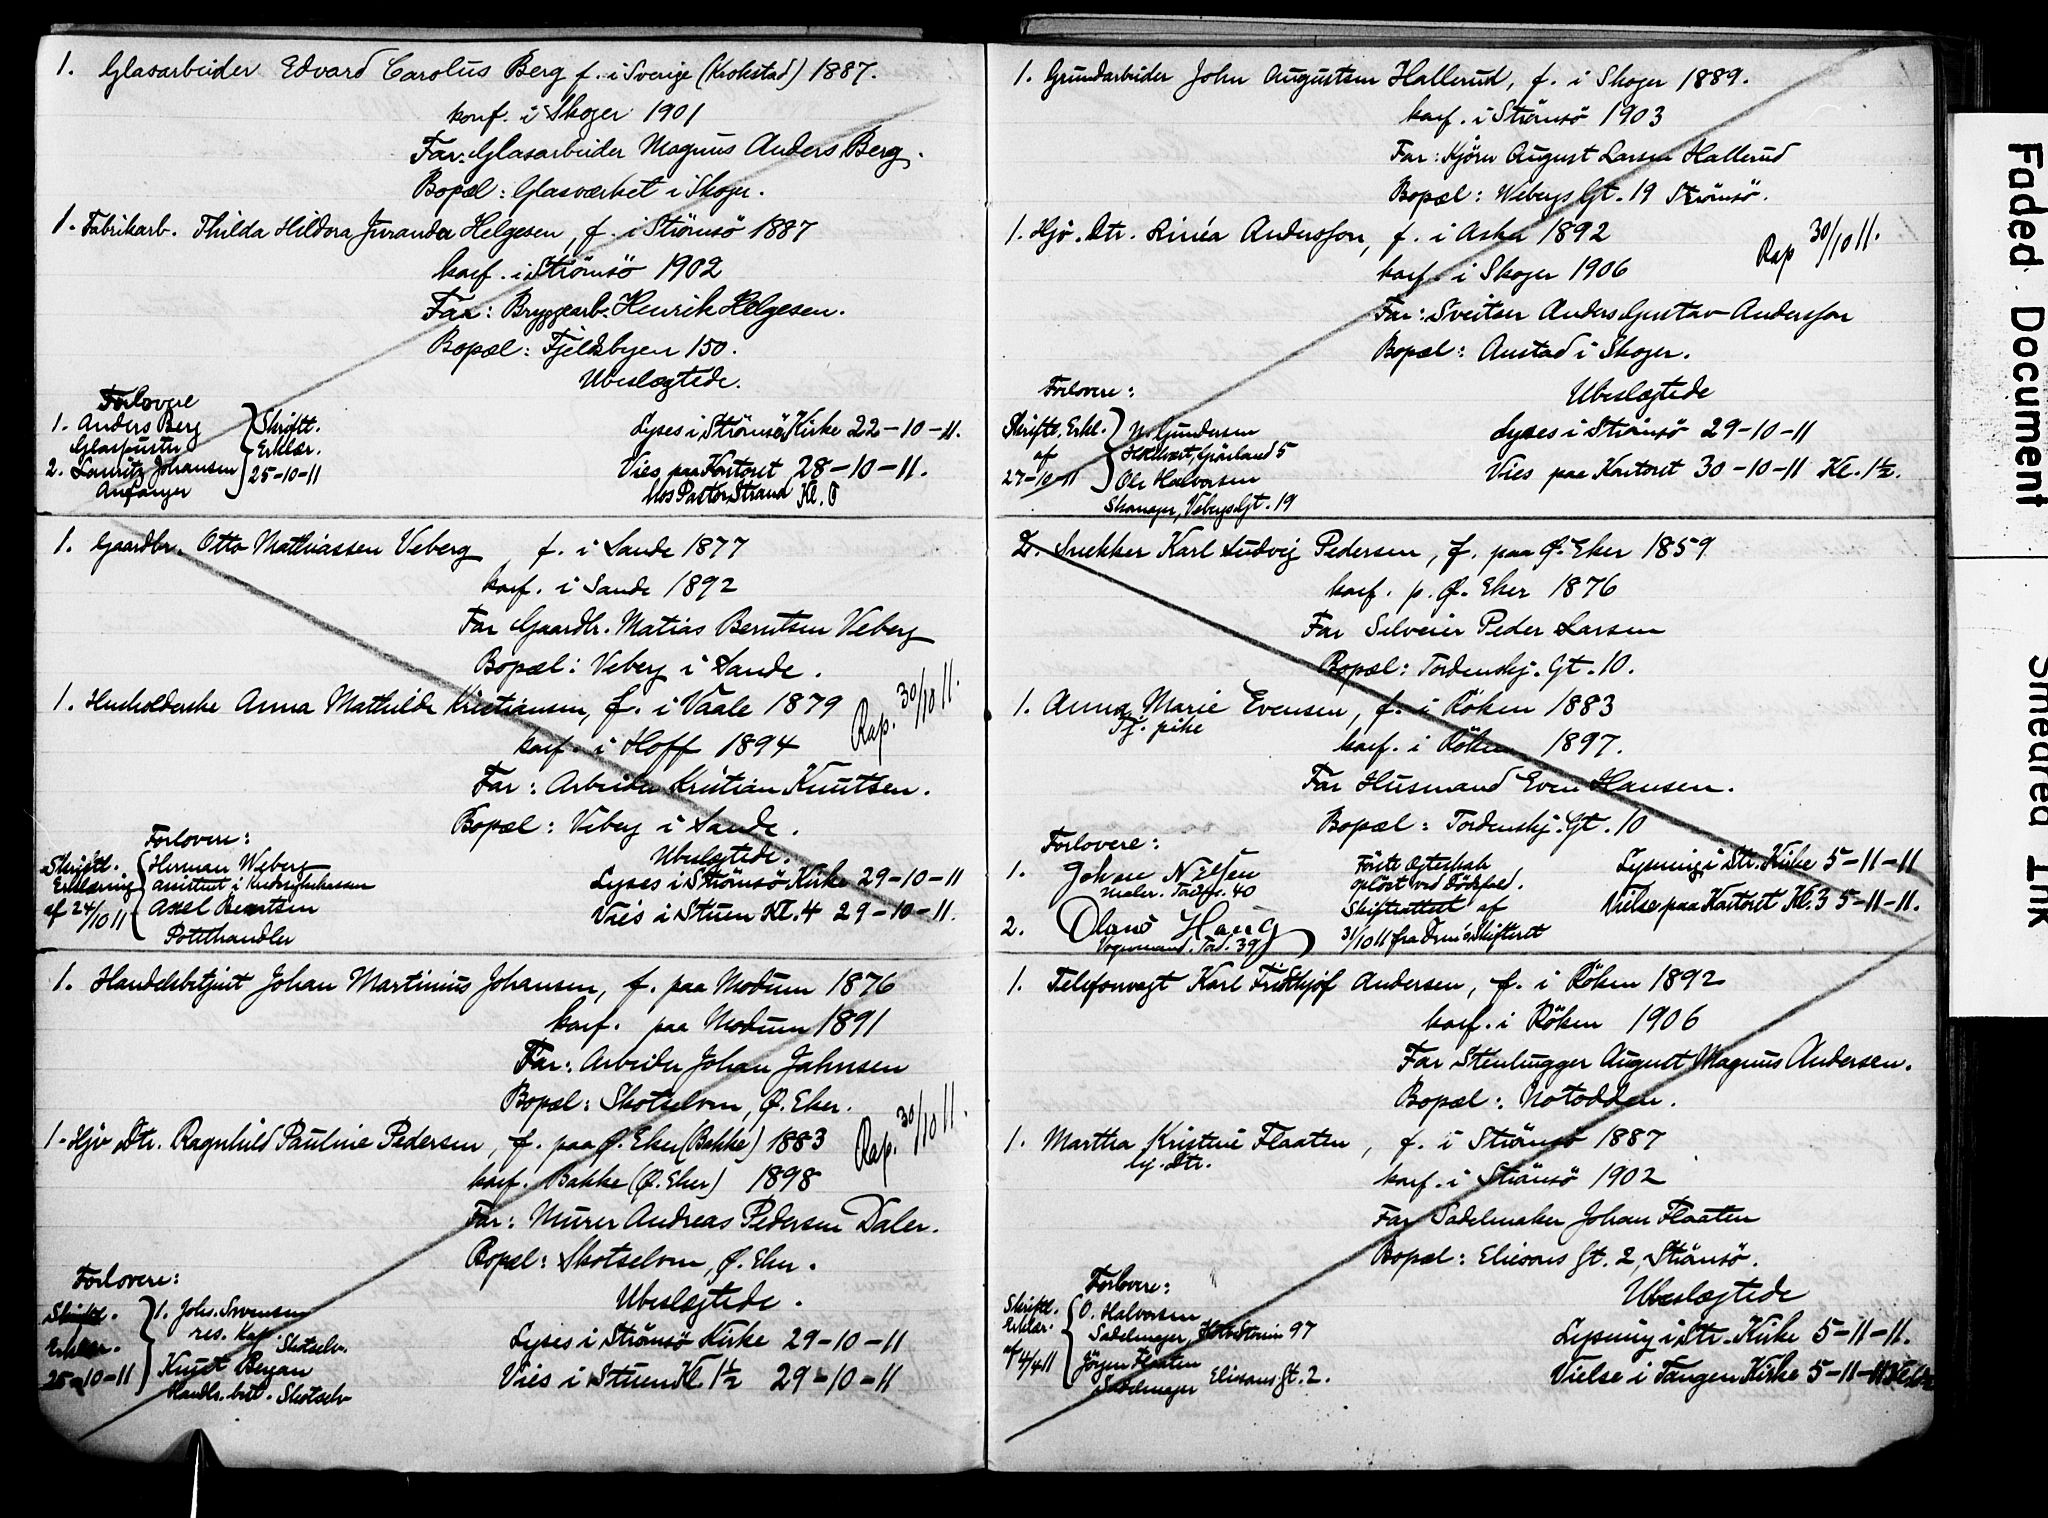 1. Glasarbeider Edvard Carolus Berg f. i Sverige (Krokstad) 1887.
konf. i Skoger 1901
Far: Glasarbeider Magnus Anders Berg.
Bopæl: Glasværket i Skoger.
1. Fabrikarb. Thilda Hildora Juranda Helgesen, f. i Strömsö 1887
konf. i Strömsö 1902
Far: Bryggearb. Henrik Helgesen.
Bopæl: Fjeldsbyen 150.
Ubeslægtede.
Forlovere
1. Anders Berg
Glaspuster
2. Lauritz Johansen
Anfanger
Skriftl.
Erklær.
25-10-11
Lyses i Strömsö Kirke 22-10-11.
Vies paa Kontoret 28-10-11.
hos Pastor Strand Kl. 6
1. Gaardbr. Otto Mathiassen Veberg f. i Sande 1877
konf. i Sande 1892
Far Gaardbr. Matias Berntsen Veberg
Bopæl: Veberg i Sande.
1. Husholderske Anna Mathilde Kristiansen, f. i Vaale 1879
Rap. 30/10 11.
konf. i Hoff 1894
Far: Arbeider Kristian Knutsen.
Bopæl: Veberg i Sande.
Ubeslægtede.
Forlovere:
Skriftl.
Erklæring
af 24/10 11
Herman Weberg
assistent i
Axel Berntsen
Potethandler
Lyses i Strömsö Kirke 29-10-11
Vies i Stuen Kl. 4 29-10-11.
1. Handelsbetjent Johan Martinius Johansen, f. paa Modum 1876
konf. paa Modum 1891
Far: Arbeider Johan Jahnsen
Bopæl: Skotselven, Ø. Eker.
1. Hjv Dtr. Ragnhild Pauline Pedersen, f. paa Ø. Eker (Bakke) 1883
Rap. 30/10 11.
konf. Bakke (Ø. Eker) 1898
Far: Murer Andreas Pedersen Daler.
Bopæl: Skotselven, Ø. Eker.
Ubeslægtede.
Forlovere:
Skriftl.
Erklær.
25-10-11
1. Johs. Svensen
res. Kap. Skotselv.
Knut Bergan
Handl. bet. Skotselv
Lyses i Strömsö Kirke 29-10-11
Vies i Stuen Kl. 1½ 29-10-11
1. Grundarbeider John Augustsen Hallerud, f. i Skoger 1889.
konf. i Strömsö 1903
Far: Kjörer August Larsen Hallerud
Bopæl: Webergs Gt. 19 Strömsö.
1. Hjv. Dtr. Linéa Andersson, f. i Asker 1892
Rap 30/10 11.
konf. i Skoger 1906
Far: Sveitser Anders Gustav Andersson
Bopæl: Austad i Skoger.
Ubeslægtede
Forlovere:
Skriftl. Erkl.
af
27-10-11
N. Gundersen
Grönland 5
Ole Halvorsen
Skomager, Vebergs Gt. 19
Lyses i Strömsö 29-10-11
Vies paa Kontoret 30-10-11 Kl. 1½.
2. Snekker Karl Ludvig Pedersen, f. paa Ø. Eker 1859
konf. p. Ø. Eker 1876
Far Selveier Peder Larsen
Bopæl: Tordenskj. Gt. 10.
1. Anna Marie Evensen, f. i Röken 1883
Tj. pike
konf. i Röken 1897.
Far Husmand Even Hansen.
Bopæl: Tordenskj. Gt. 10
Forlovere:
1. Johan Nilsen
Maler. Tords. 40
2. Olano Haug
Vognmand. Tord. 39
Förste Egteskab
oplöst ved Dödsfald.
Skifteattest af
31/10 11 fra Drm's Skifteret
Lysning i Str. Kirke 5-11-11
Vielse paa Kontoret Kl. 3 5-11-11.
1. Telefonvagt Karl Fridthjof Andersen, f. i Röken 1892
konf. i Röken 1906
Far Stenhugger August Magnus Andersen.
Bopæl: Notodden.
1. Martha Kristine Flaaten, f. i Strömsö 1887
hj. Dtr.
konf. i Strömsö 1902
Far Sadelmaker Johan Flaaten
Bopæl: Eliesons Gt. 2, Strömsö.
Ubeslægtede
Forlovere:
Skriftl.
Erklær.
af 4/11
O. Halvorsen
Sadelmager, 97
Jörgen Flaaten
Sadelmager Eliesons Gt. 2.
Lysning i Str. Kirke 5-11-11.
Vielse i Tangen Kirke 5-11-11
Faded Document
Smeared Ink